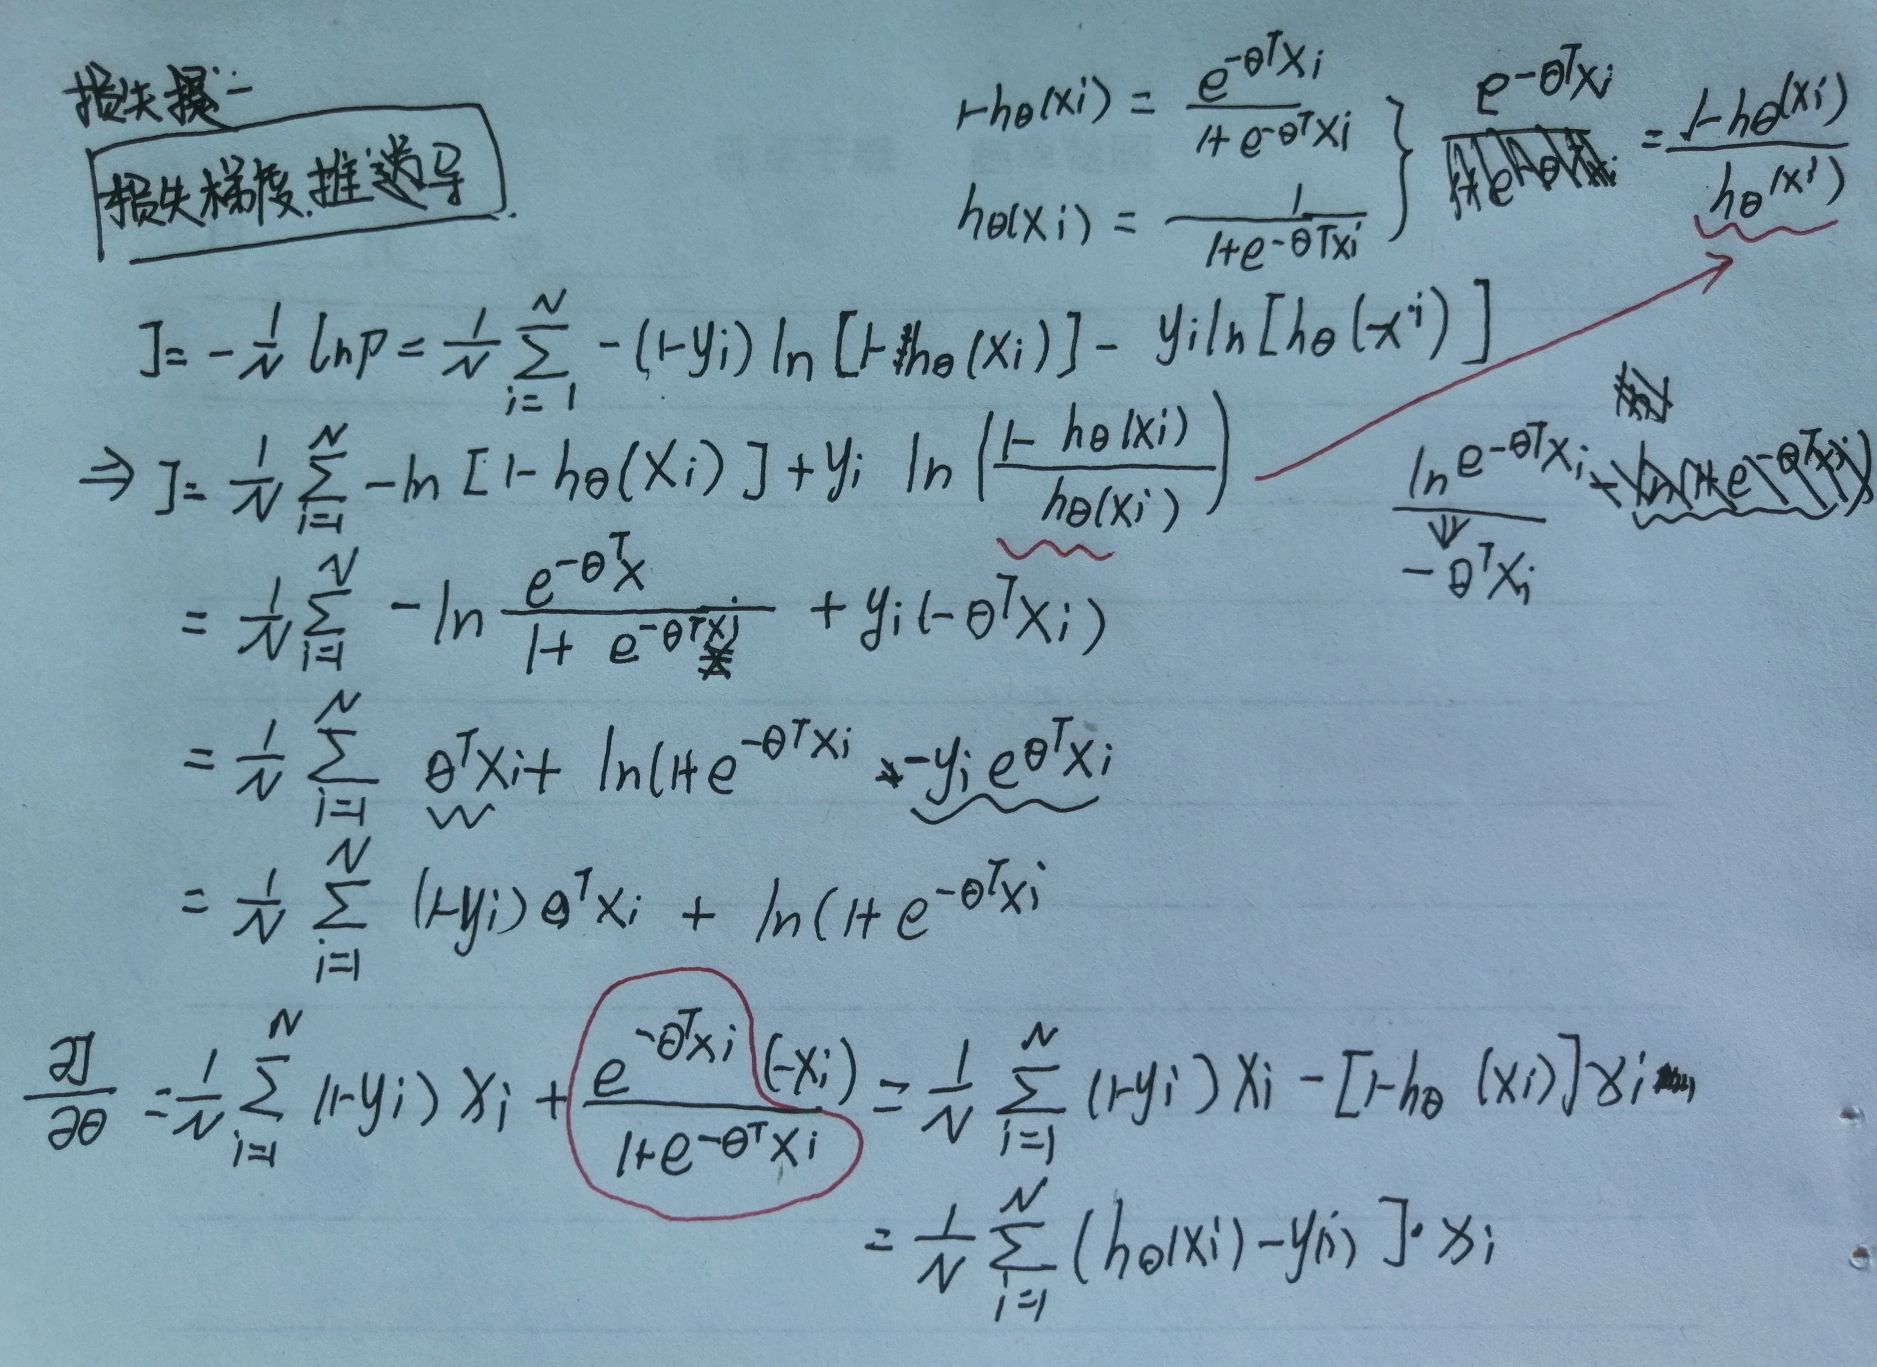 损失
损失梯度.推导
1-hθ(xi) = e^{-θ^T xi} / (1+e^{-θ^T xi})
hθ(xi) = 1 / (1+e^{-θ^T xi})
} e^{-θ^T xi} = (1-hθ(xi)) / hθ(xi)
J = -1/N ln P = 1/N Σ_{i=1}^{N} -(1-yi) ln [1-hθ(xi)] - yi ln [hθ(xi)]
⇒ J = 1/N Σ_{i=1}^{N} -ln [1-hθ(xi)] + yi ln ((1-hθ(xi)) / hθ(xi))
ln e^{-θ^T xi}
⇓
-θ^T xi
= 1/N Σ_{i=1}^{N} -ln e^{-θ^T x} / (1+e^{-θ^T xi}) + yi(-θ^T xi)
= 1/N Σ_{i=1}^{N} θ^T xi + ln(1+e^{-θ^T xi} -yi eθ^T xi
= 1/N Σ_{i=1}^{N} (1-yi) θ^T xi + ln(1+e^{-θ^T xi}
∂J/∂θ = 1/N Σ_{i=1}^{N} (1-yi) xi + e^{-θ^T xi} (-xi) / (1+e^{-θ^T xi}) = 1/N Σ_{i=1}^{N} (1-yi) xi - [1-hθ(xi)] xi
= 1/N Σ_{i=1}^{N} (hθ(xi) - y(i) ] · xi